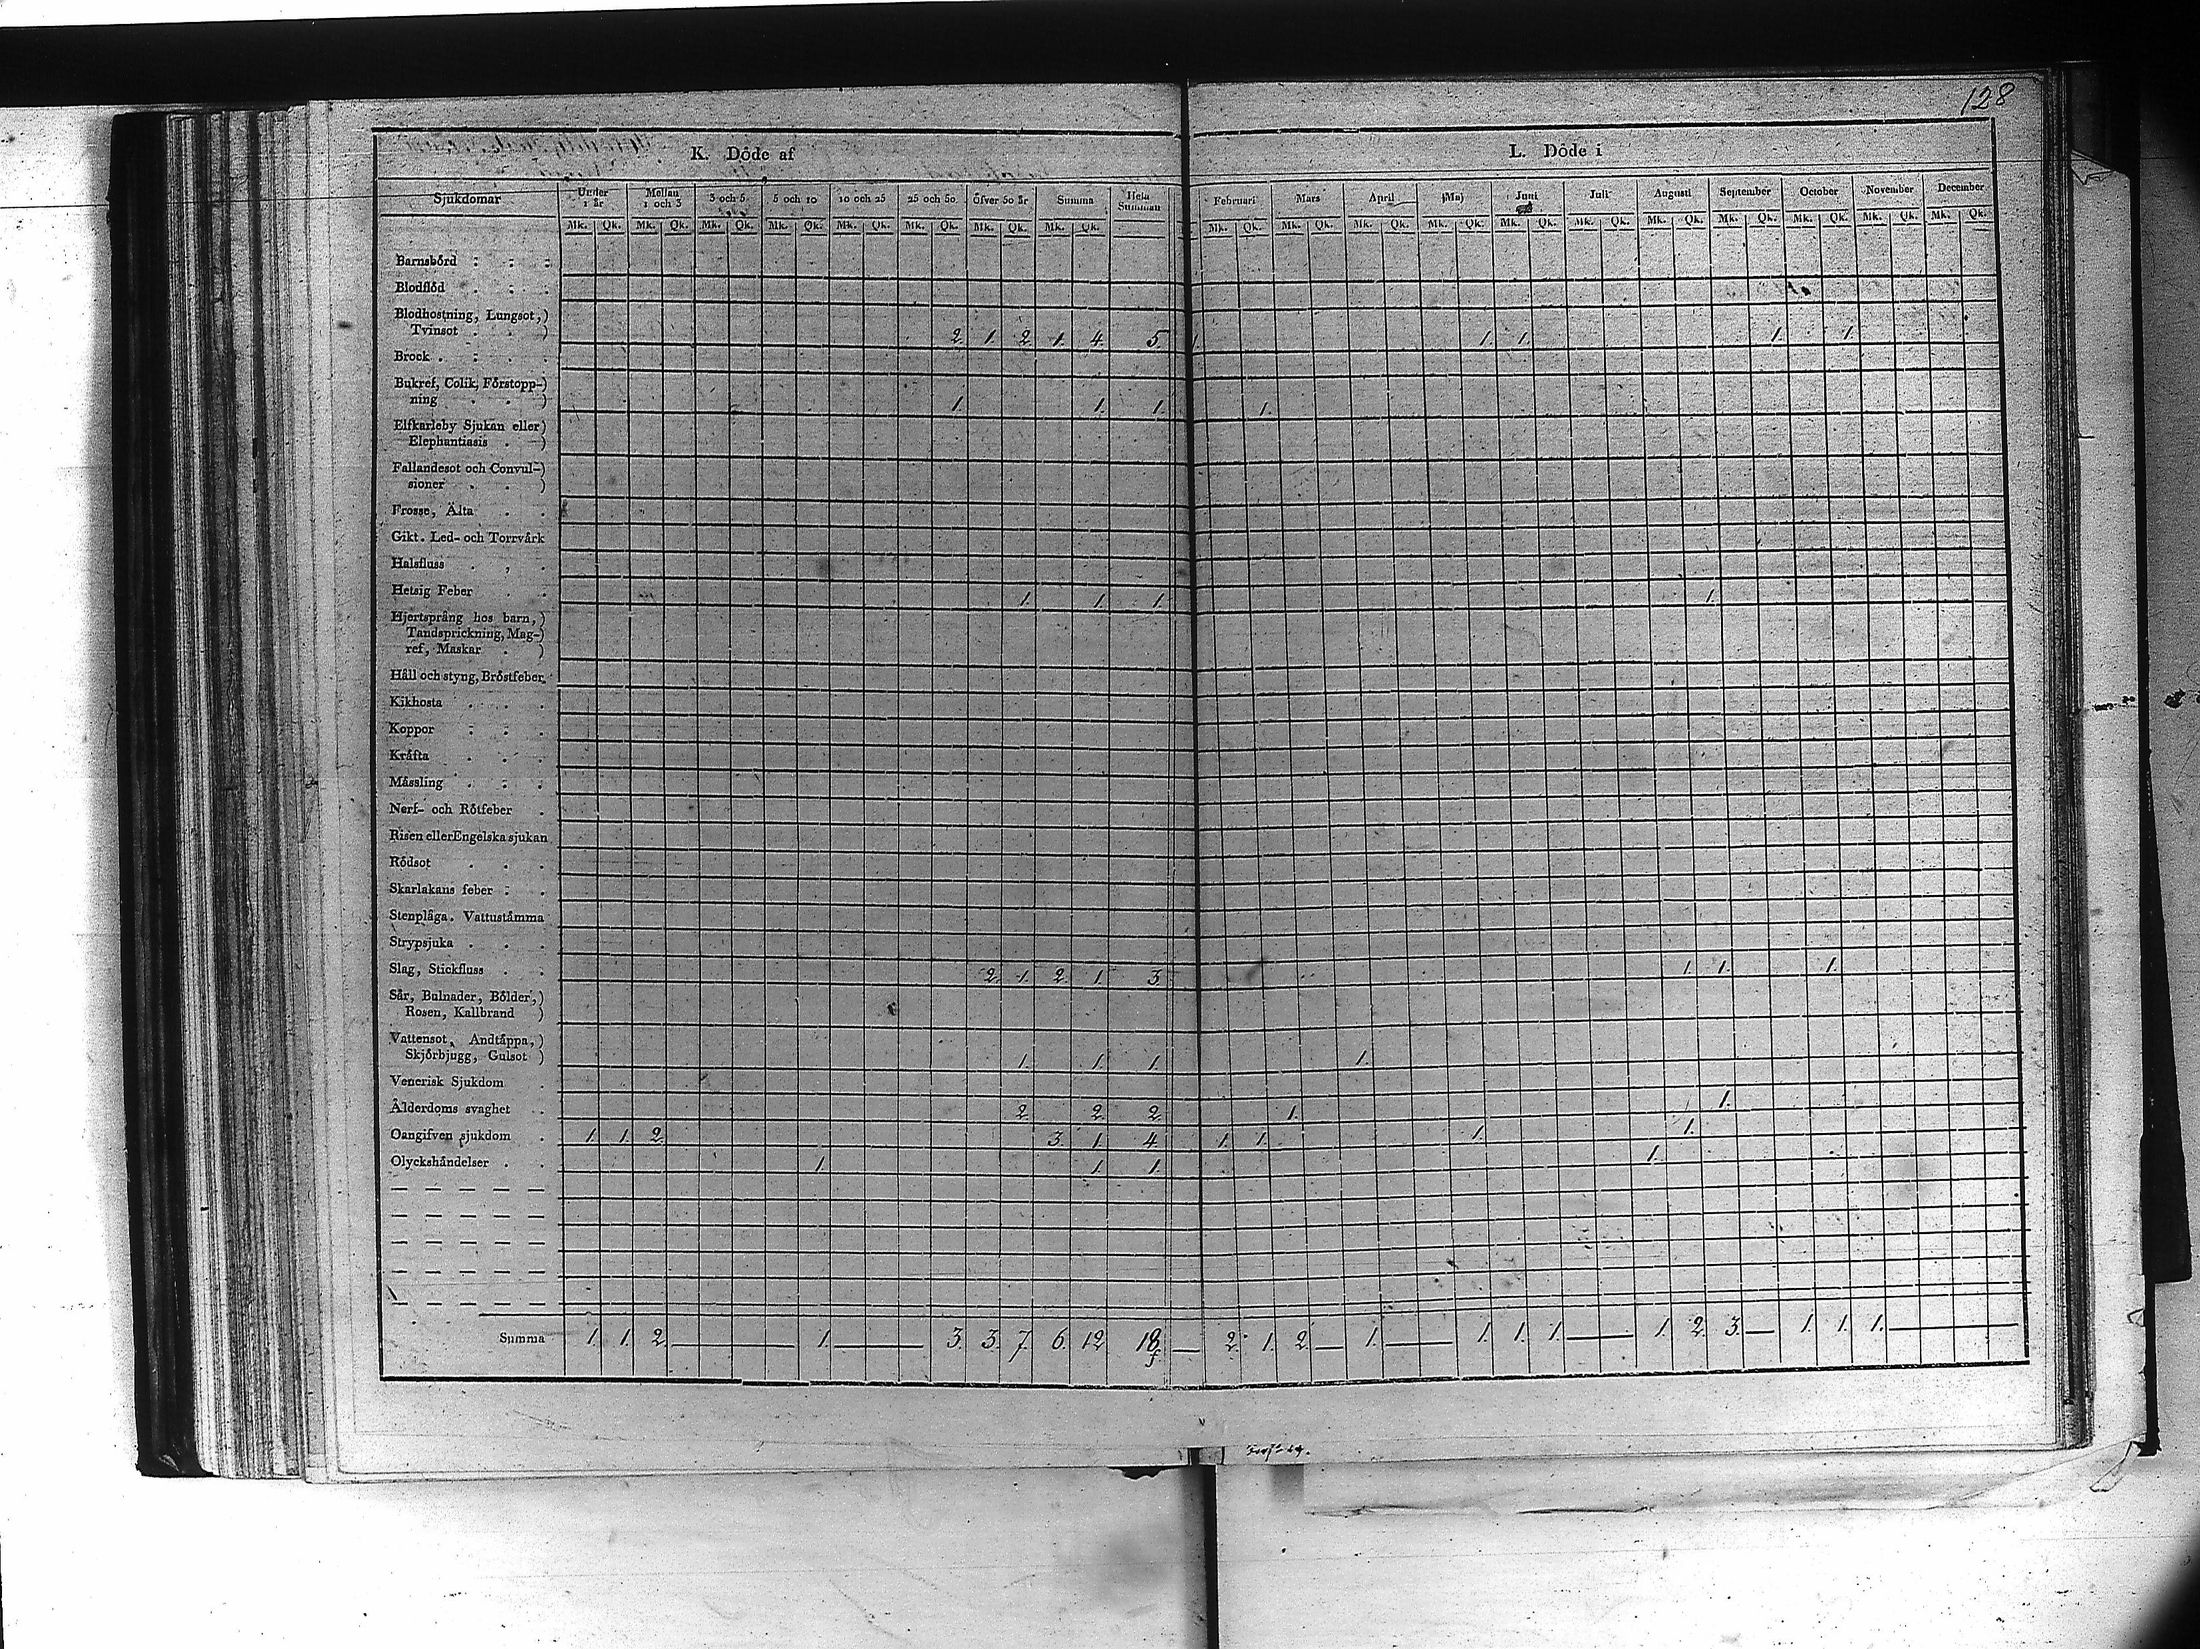 128
K. Döde af
L. Döde i
Sjukdomar Under 1 år Mellan 1 och 3 3 och 5 5 och 10 10 och 25 25 och 50 Öfver 50 år Summa Hela Summan Februari Mars April Maj Juni Juli Augusti September October November December
Mk. Qk. Mk. Qk. Mk. Qk. Mk. Qk. Mk. Qk. Mk. Qk. Mk. Qk. Mk. Qk. Mk. Qk. Mk. Qk. Mk. Qk. Mk. Qk. Mk. Qk. Mk. Qk. Mk. Qk. Mk. Qk. Mk. Qk. Mk. Qk. Mk. Qk.
Barnsbörd
Blodflöd
Blodhostning, Lungsot,)
Tvinsot . . ) 2. 1. 2. 1. 4. 5. 1. 1. 1. 1. 1.
Brock
Bukref, Colik, Förstopp-)
ning . . ) 1. 1. 1. 1.
Elfkarleby Sjukan eller)
Elephantiasis . )
Fallandesot och Convul-)
sioner . . )
Frosse, Älta
Gikt. Led- och Torrvärk
Halsfluss
Hetsig Feber 1. 1. 1. 1.
Hjertsprång hos barn,)
Tandsprickning, Mag-)
ref, Maskar . )
Håll och styng, Bröstfeber
Kikhosta
Koppor
Kräfta
Mässling
Nerf- och Rötfeber
Risen eller Engelska sjukan
Rödsot
Skarlakans feber
Stenplåga. Vattustämma
Strypsjuka
Slag, Stickfluss 2. 1. 2. 1. 3 1. 1. 1.
Sår, Bulnader, Bölder,)
Rosen, Kallbrand )
Vattensot, Andtäppa,)
Skjörbjugg, Gulsot ) 1. 1. 1. 1.
Venerisk Sjukdom
Ålderdoms svaghet 2. 2. 2. 1. 1.
Oangifven sjukdom 1. 1. 2. 3. 1. 4. 1. 1. 1. 1.
Olyckshändelser 1. 1. 1. 1.
Summa 1. 1. 2. — 1. — 3. 3. 7. 6. 12 18 — 2. 1. 2. — 1. — 1. 1. 1. — 1. 2. 3. — 1. 1. 1. —